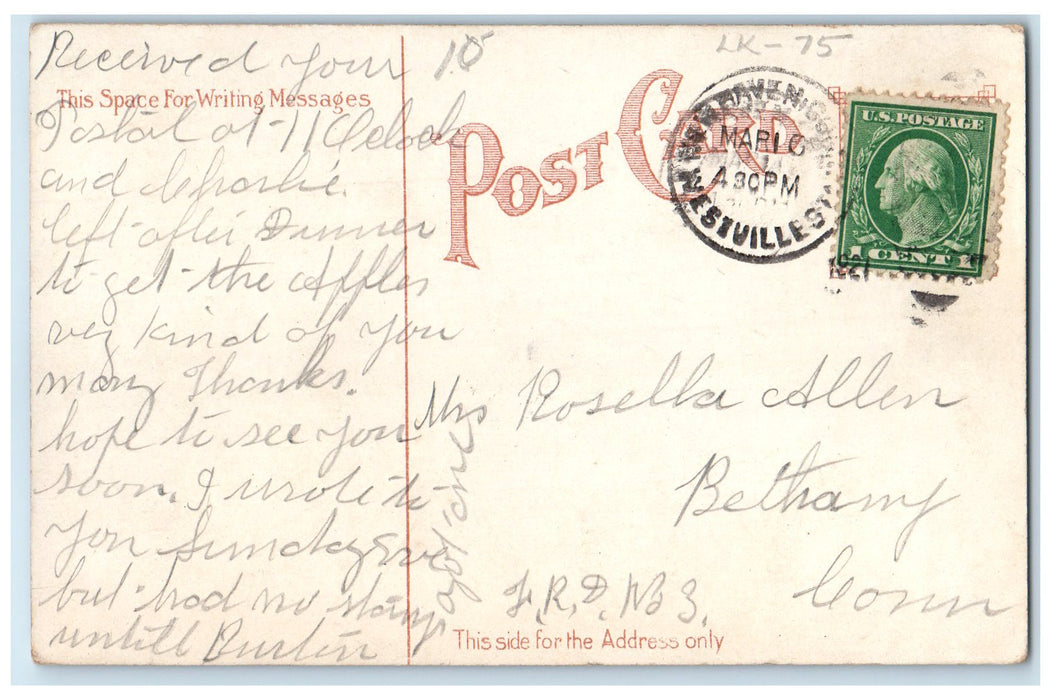 Received your
This Space For Writing Messages
Postal at 11 Oclock
and Charlie.
left after Dinner
to get the Apples
very kind of you
many Thanks.
hope to see you
soon. I wrote to
you Sunday Eve
but had no stamp
untill Burtin
15
LK-75
POST CARD
NEW HAVEN, CONN.
MAR 10
4 30 PM
WESTVILLE STA.
U.S. POSTAGE
1 CENT 1
1921
Mrs Rosella Allen
Bethany
Conn
F.R.D. No 3.
This side for the Address only